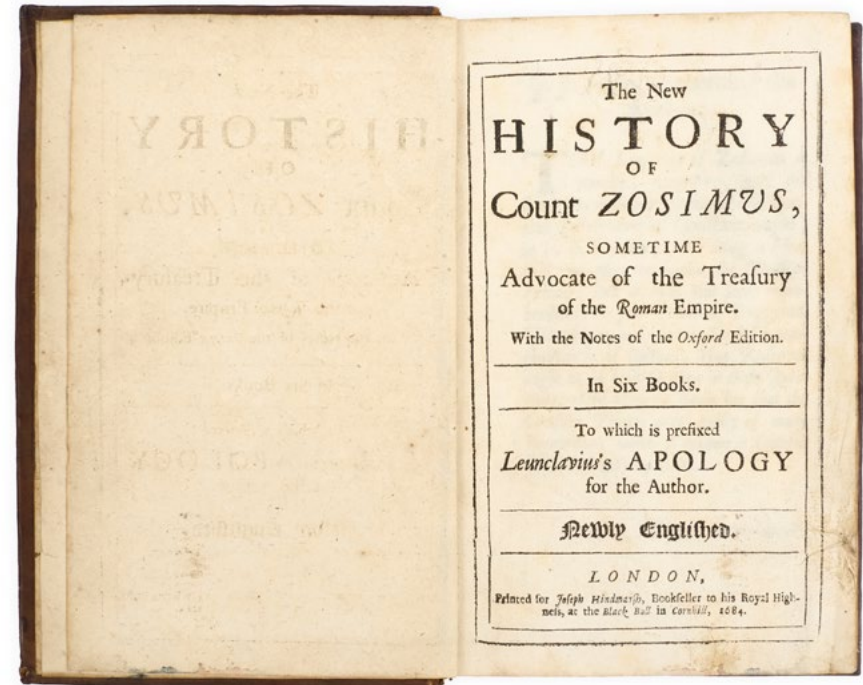 The New
HISTORY
OF
Count ZOSIMUS,
SOMETIME
Advocate of the Treaſury
of the Roman Empire.
With the Notes of the Oxford Edition.
In Six Books.
To which is prefixed
Leunclavius's APOLOGY
for the Author.
Newly Engliſhed.
LONDON,
Printed for Joſeph Hindmarſh, Bookſeller to his Royal High-
neſs, at the Black Bull in Cornhill, 1684.